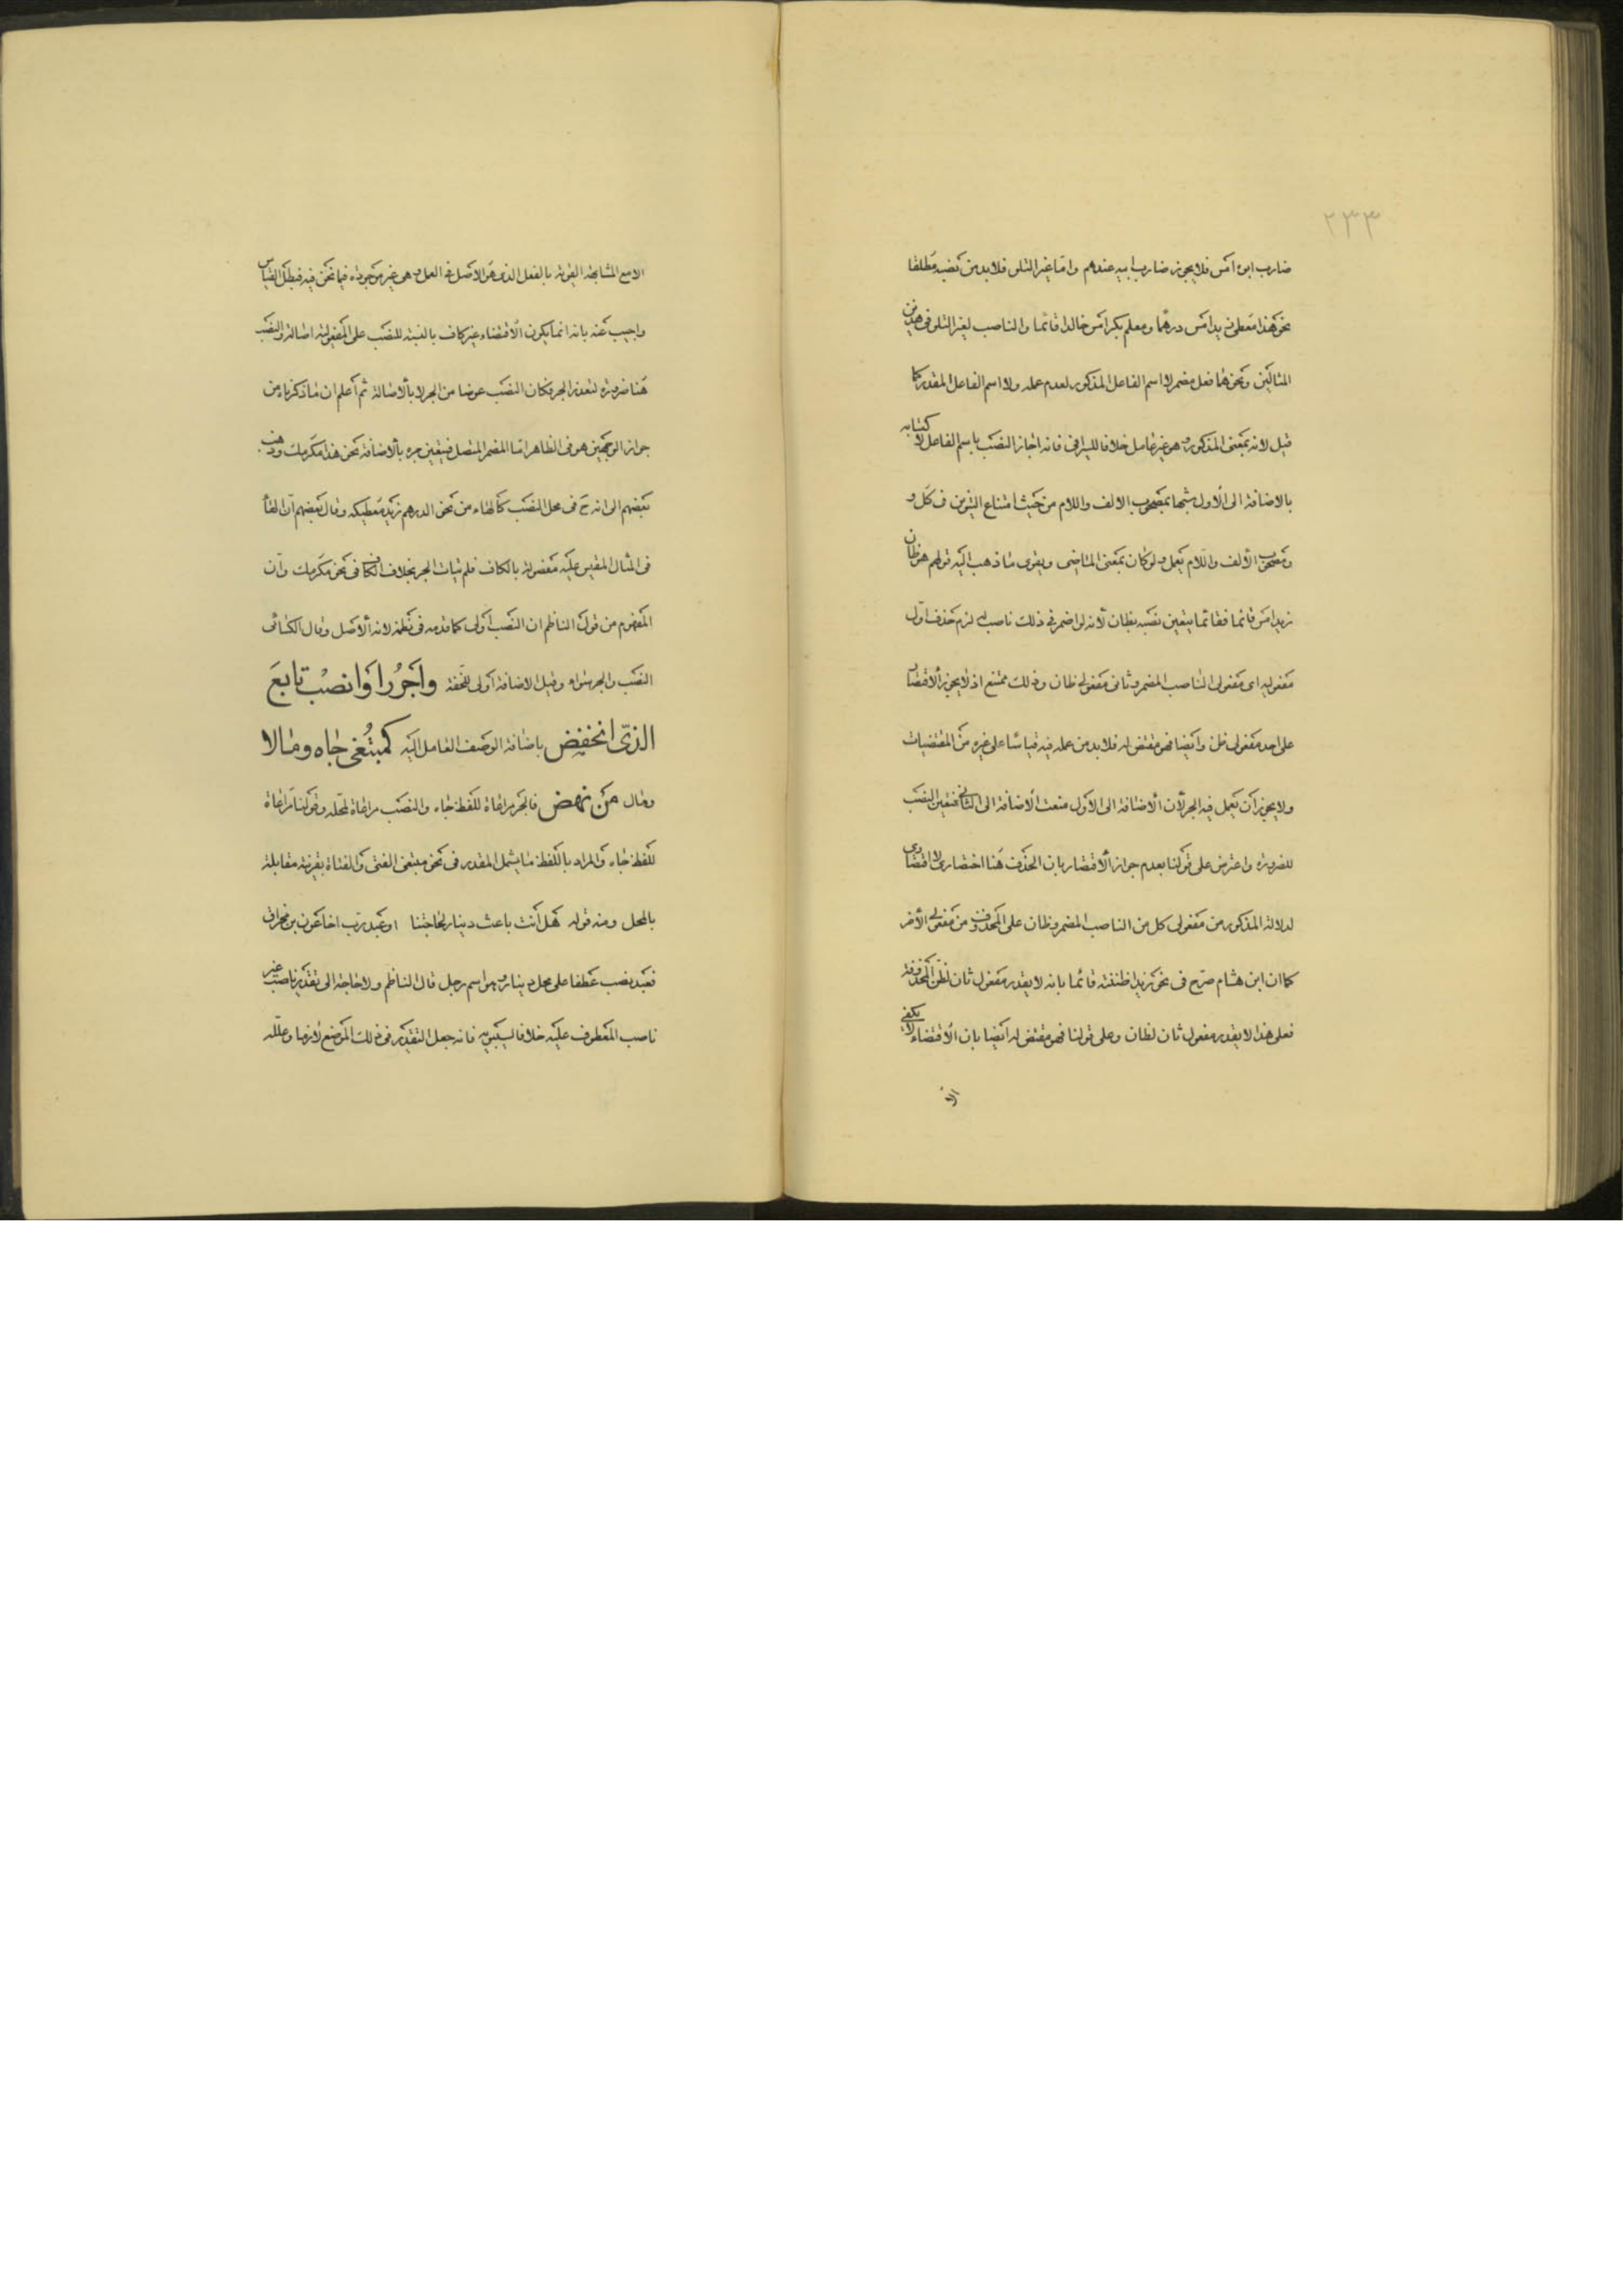 ٢٣٣
ضارب ابوه امس فلا يجوز ضارب ابيه عندهم واما غير التلو فلا بد من نصبه مطلقا
نحو هذا معطى زيد امس درهما ومعلم بكر امس خالدا قائما والناصب لغير التلو فى هذين
المثالين ونحوهما فعل مضمر لا اسم الفاعل المذكور لعدم عمله ولا اسم الفاعل المقدر كما
قيل لانه بمعنى المذكور وهو غير عامل خلافا للسيرافى فانه اجاز النصب باسم الفاعل لاكتسابه
بالاضافة الى الاول شبها بمصحوب الالف واللام من حيث امتناع التنوين فى كل و
ومصحوب الألف واللام يعمل ولو كان بمعنى الماضى ويقوى ما ذهب اليه قولهم هو ظان
زيد امس قائما فقائما يتعين نصبه بظان لأنه لو اضمر فى ذلك ناصب لزم حذف اول
مفعوليه اى مفعولى الناصب المضمر وثانى مفعولى ظان وذلك ممتنع اذ لا يجوز الأقتصار
على احد مفعولى ظن وأيضا فهو مقتض له فلا بد من عمله فيه قياسا على غيره من المقتضيات
ولا يجوز أن يعمل فيه الجر لأن الأضافة الى الاول منعت الاضافة الى الثانى فتعين النصب
للضرورة واعترض على قولنا بعدم جواز ألاقتصار بان الحذف هنا اختصارى لا اقتصارى
لدلالة المذكور من مفعولى كل من الناصب المضمر وظان على المحذوف من مفعولى الأخر
كما ان ابن هشام صرّح فى نحو زيدا ظننته قائما بانه لا يقدر مفعول ثان لظن المحذوفة
فعلى هذا لا يقدر مفعول ثان لظان وعلى قولنا فهو مقتض له أيضا بان الأقتضاء لا يكفى
الا
الا مع المشابهة القوية بالفعل الذى هو الاصل فى العمل وهى غير موجودة فيما نحن فيه فبطل القياس
واجيب عنه بانه انما يكون الاقتضاء غير كاف بالنسبة للنصب على المفعولية اصالة والنصب
هنا ضرورة لتعذر الجر فكان النصب عوضا من الجر لا بألاصالة ثم أعلم ان ما ذكرناه من
جواز الوجهين هو فى الظاهر اما المضمر المتصل فيتعين جره بألاضافة نحو هذا مكرمك وذهب
بعضهم الى انه ح فى محل النصب كالهاء من نحو الدرهم زيد معطيكه وقال بعضهم أن الهاء
فى المثال المقيس عليه مفصولة بالكاف فلم يتات الجر بخلاف الكاف فى نحو مكرمك وأن
المفهوم من قول الناظم ان النصب أولى كما قدمه فى نظمه لانه ألاصل وقال الكسائى
النصب والجر سواء وقيل الاضافة أولى للخفة وأجرُر أوانصب تابعَ
الذى انخفض باضافة الوصف العامل اليه كمبتغى جاه ومالا
وقال من نهض فالجر مراعاة للفظ جاه والنصب مراعاة لمحله وقولنا مراعاة
للفظ جاه والمراد باللفظ ما يشمل المقدر فى نحو مبتغى الفتى والفتاة بقرينة مقابلة
بالمحل ومنه قوله هل أنت باعث دينار لحاجتنا او عبد رب اخا عون بن مخراق
فعبد نصب عطفا على محل دينار وهو اسم رجل قال الناظم ولا حاجة الى تقدير ناصب غير
ناصب المعطوف عليه خلافا لسيبويه فانه جعل التقدير فى ذلك الموضع لازما وعلله